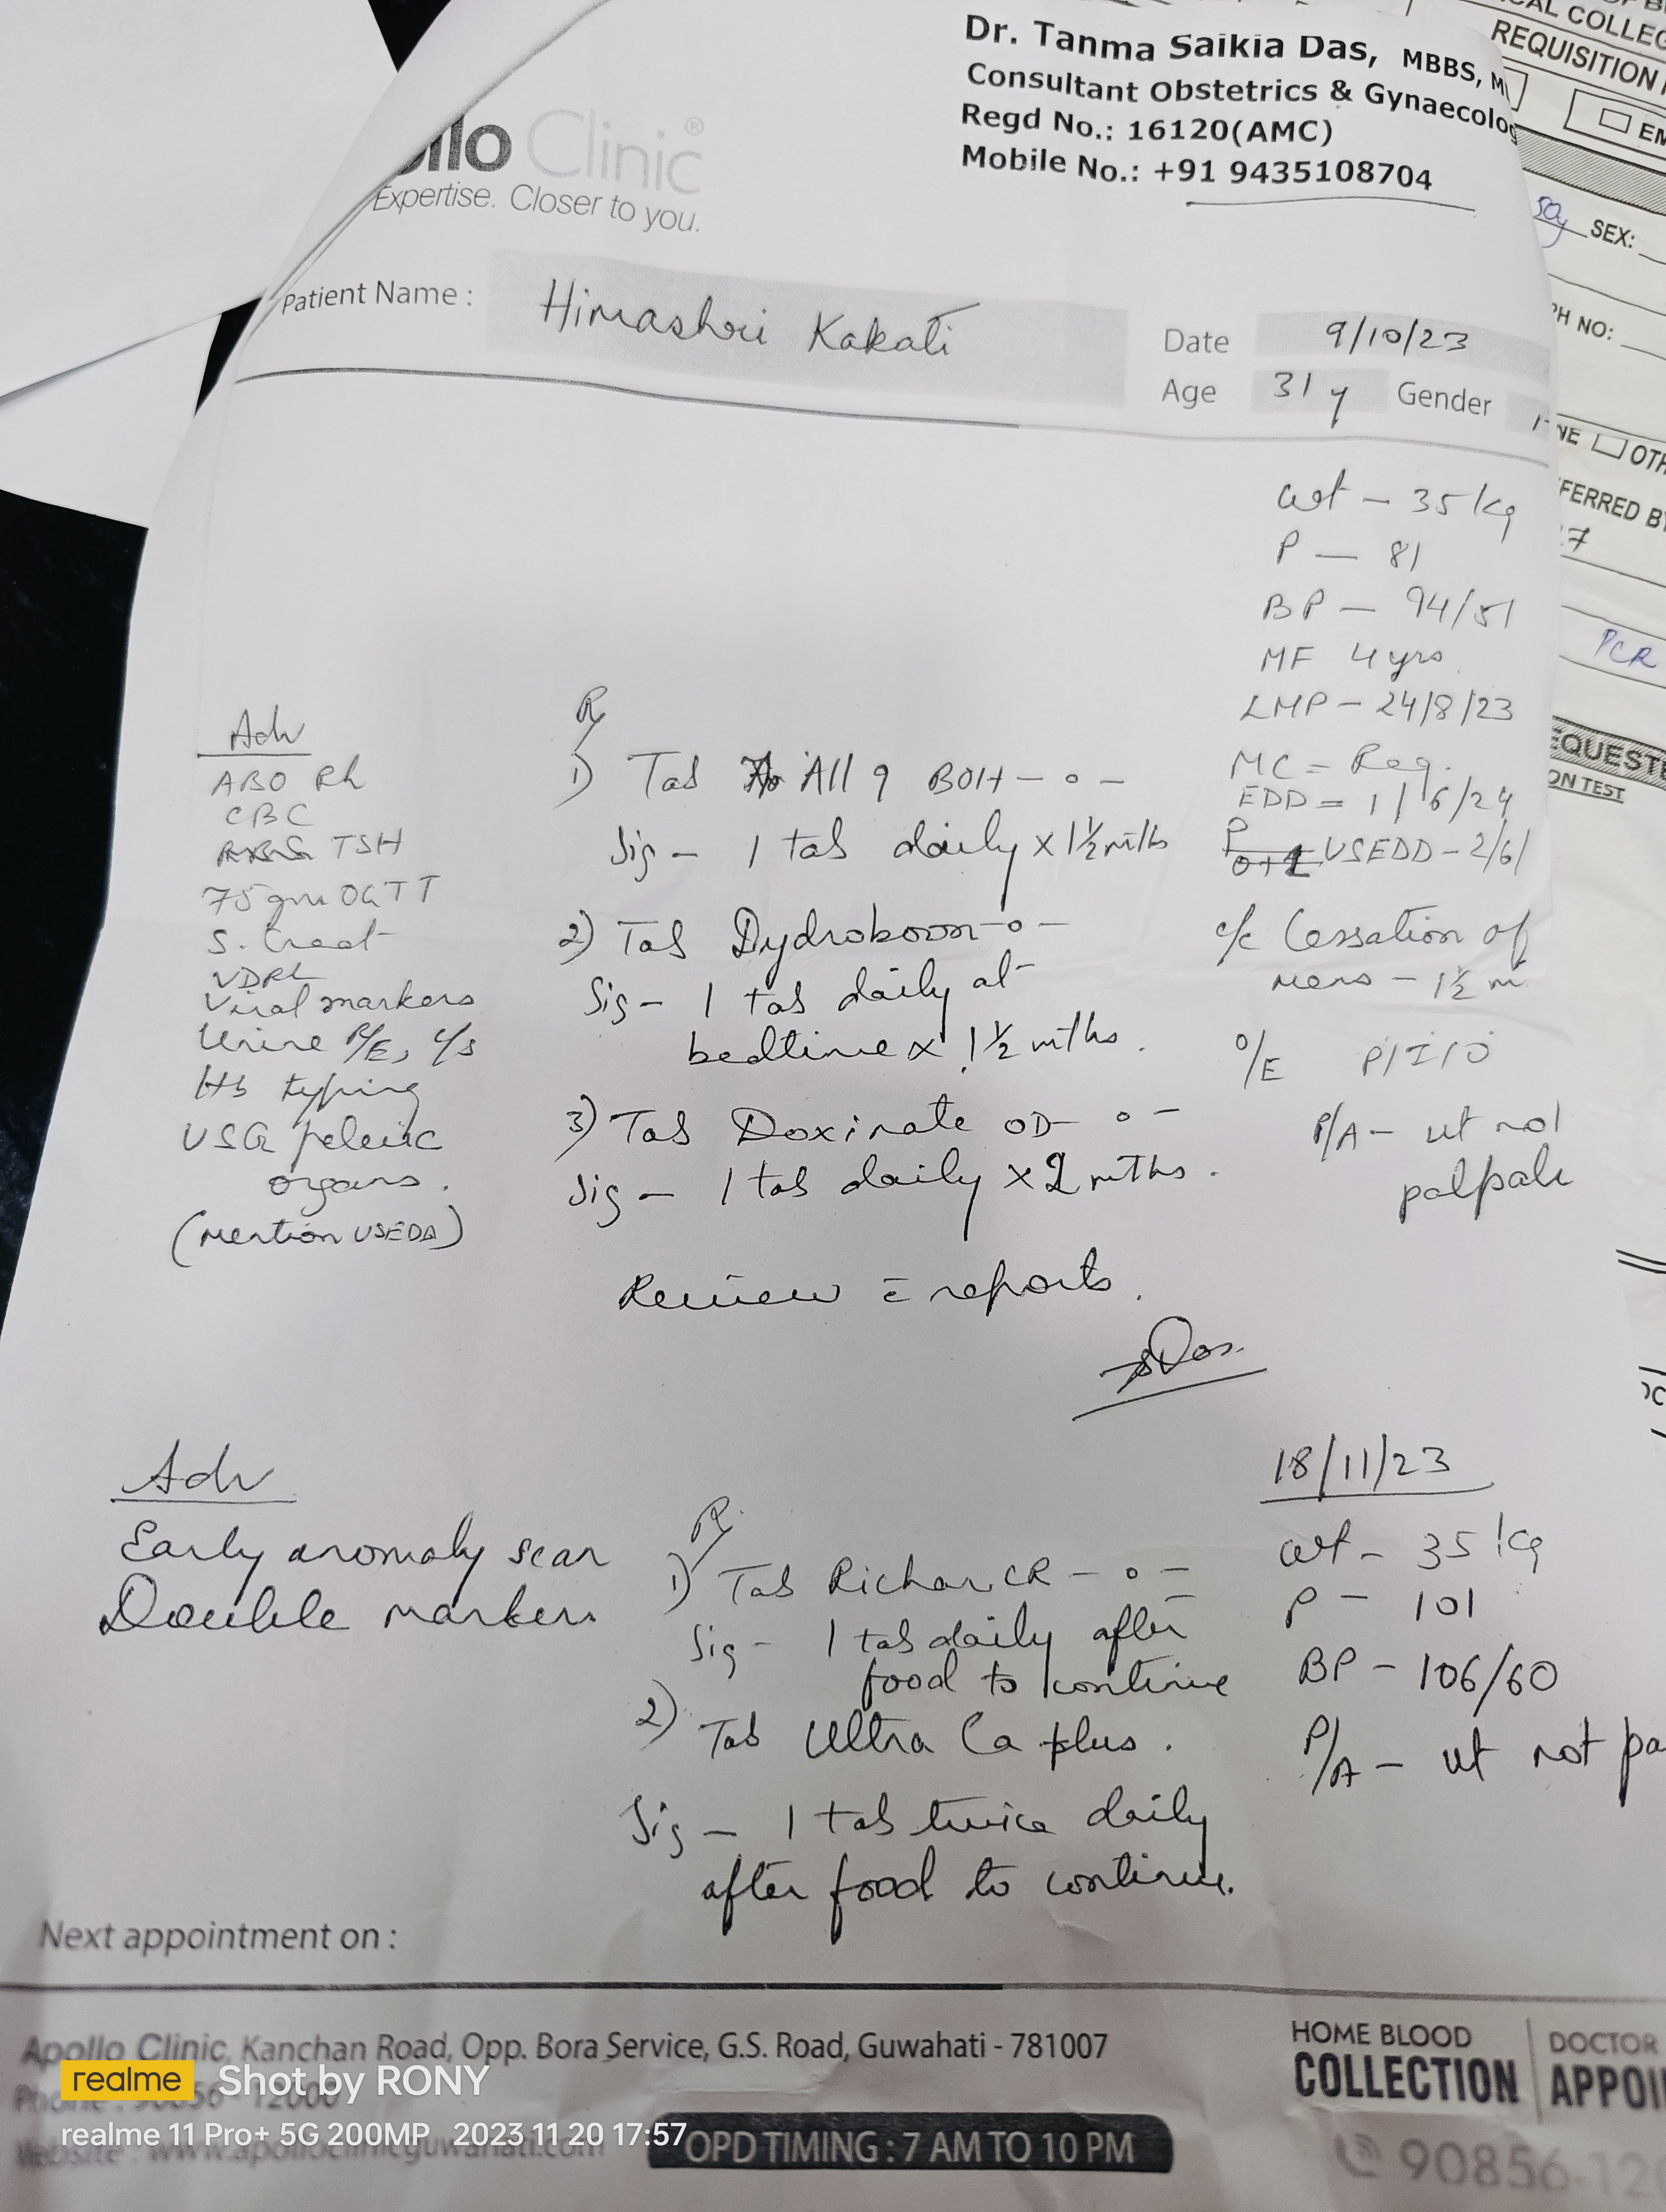 Dr. Tanma Saikia Das, MBBS, M
Consultant Obstetrics & Gynaecolog
Regd No.: 16120(AMC)
Mobile No.: +91 9435108704
ollo Clinic®
Expertise. Closer to you.
Patient Name : Himashri Kakati
Date 9/10/23
Age 31 y Gender
wt - 35 kg
P - 81
BP - 94/51
MF 4 yrs
LMP - 24/8/23
MC = Reg.
EDD = 1/6/24
USEDD - 2/6/
c/c Cessation of
mens - 1½ m
O/E P/I/O
P/A - ut not
palpabl
Adv
ABO Rh
CBC
TSH
75 gm OGTT
S. Creat
VDRL
Viral markers
Urine R/E, C/S
Hb typing
USG pelvic
organs.
(mention USEDD)
R
1) Tab All 9 BOH - o -
Sig - 1 tab daily x 1½ mths
2) Tab Dydroboon - o -
Sig - 1 tab daily at
bedtime x 1½ mths.
3) Tab Doxinate OD - o -
Sig - 1 tab daily x 2 mths.
Review c reports.
Das.
18/11/23
wt - 35 kg
P - 101
BP - 106/60
P/A - ut not pa
Adv
Early anomaly scan
Double markers
R
1) Tab Richar CR - o -
Sig - 1 tab daily after
food to continue
2) Tab Ultra Ca plus.
Sig - 1 tab twice daily
after food to continue.
Next appointment on :
Apollo Clinic, Kanchan Road, Opp. Bora Service, G.S. Road, Guwahati - 781007
HOME BLOOD
COLLECTION
DOCTOR
APPOI
OPD TIMING : 7 AM TO 10 PM
90856-120
realme Shot by RONY
realme 11 Pro+ 5G 200MP 2023 11 20 17:57
AL COLLEG
REQUISITION
EM
50y SEX:
PH NO:
NE OTH
FERRED B
PCR
EQUEST
ON TEST